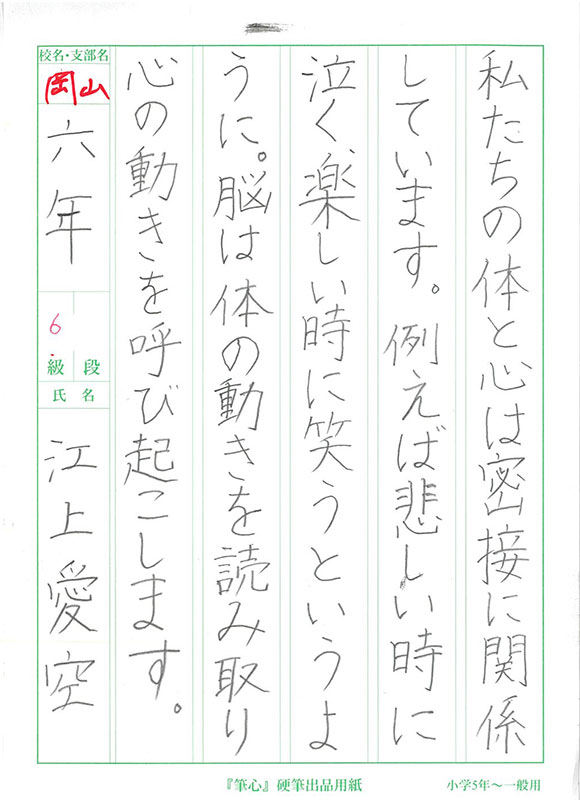 私たちの体と心は密接に関係
しています。例えば悲しい時に
泣く、楽しい時に笑うというよ
うに。脳は体の動きを読み取り
心の動きを呼び起こします。
校名・支部名
岡山
六年
6
級 段
氏 名
江上愛空
『筆心』硬筆出品用紙
小学5年〜一般用